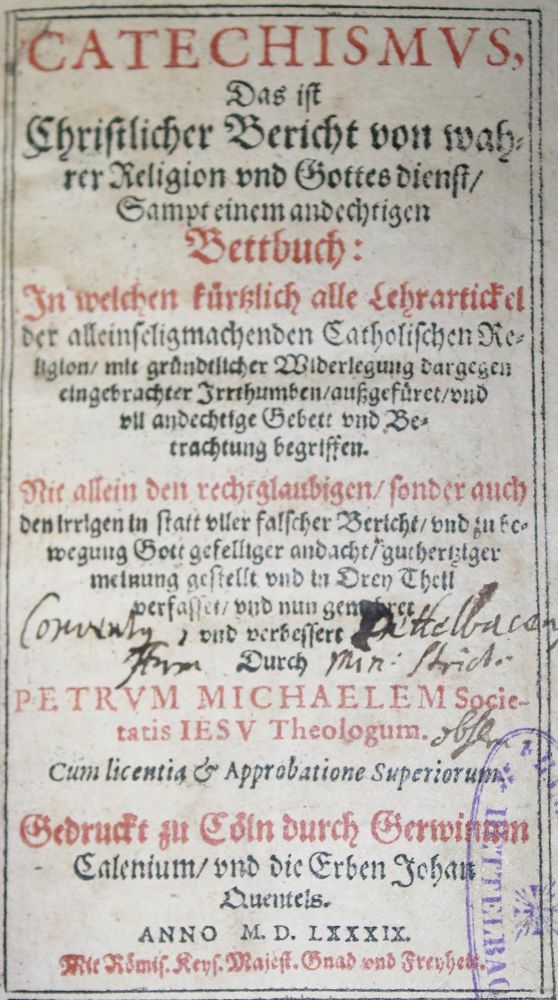 CATECHISMVS,
Das ist
Christlicher Bericht von wah-
rer Religion vnd Gottesdienst/
Sampt einem andechtigen
Bettbuch:
In welchen kürtzlich alle Lehrartickel
der alleinseligmachenden Catholischen Re-
ligion/ mit gründtlicher Widerlegung dargegen
eingebrachter Irrthumben/außgefüret/vnd
vil andechtige Gebett vnd Be-
trachtung begriffen.
Nit allein den rechtglaubigen/ sonder auch
den irrigen in statt viler falscher Bericht/ vnd zu be-
wegung Gott gefelliger andacht/ guthertziger
meinung gestellt vnd in Drey Theil
verfasset/ vnd nun gemehret
Conventy , vnd verbessert Dettelbacen
Durch Min: Strict.
PETRVM MICHAELEM Socie-
tatis IESV Theologum.
obser
Cum licentia & Approbatione Superiorum.
Gedruckt zu Cöln durch Gerwinum
Calenium/ vnd die Erben Johan
Quentels.
ANNO M. D. LXXXIX.
Mit Römis. Keys. Maiest. Gnad vnd Freyheit.
DETTELBAC